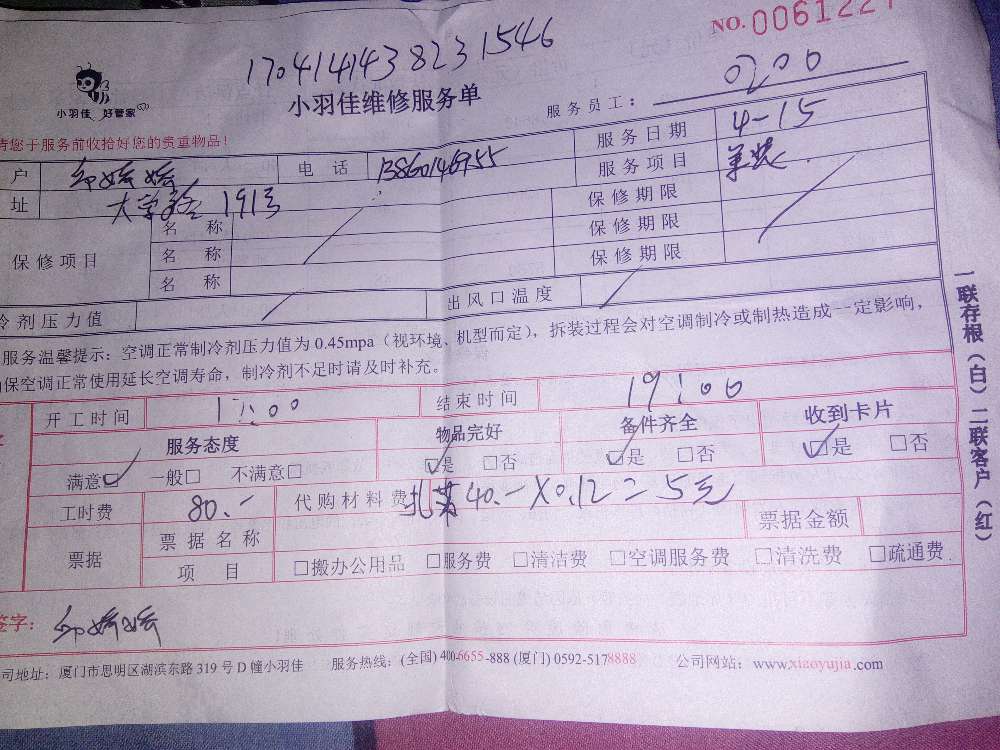 NO. 0061227
1704141438231546
小羽佳 好管家
小羽佳维修服务单
服务员工： 0200
请您于服务前收拾好您的贵重物品！
户 电 话 13860146955 服务日期 4-15
址 大学路 191号 服务项目 安装
保修项目
名 称 保修期限
名 称 保修期限
名 称 保修期限
冷剂压力值 出风口温度
服务温馨提示：空调正常制冷剂压力值为 0.45mpa（视环境、机型而定），拆装过程会对空调制冷或制热造成一定影响，
保空调正常使用延长空调寿命，制冷剂不足时请及时补充。
开工时间 结束时间 19:00
服务态度 物品完好 备件齐全 收到卡片
满意☑ 一般□ 不满意□ ☑是 □否 ☑是 □否 ☑是 □否
工时费 80.- 代购材料费 扎带 40.-X0.12=5元
票据 票据名称 票据金额
项 目 □搬办公用品 □服务费 □清洁费 □空调服务费 □清洗费 □疏通费
签字：
司地址：厦门市思明区湖滨东路 319 号 D 幢小羽佳 服务热线：(全国) 400-6655-888 (厦门) 0592-5178888 公司网站：www.xiaoyujia.com
一联存根（白）二联客户（红）